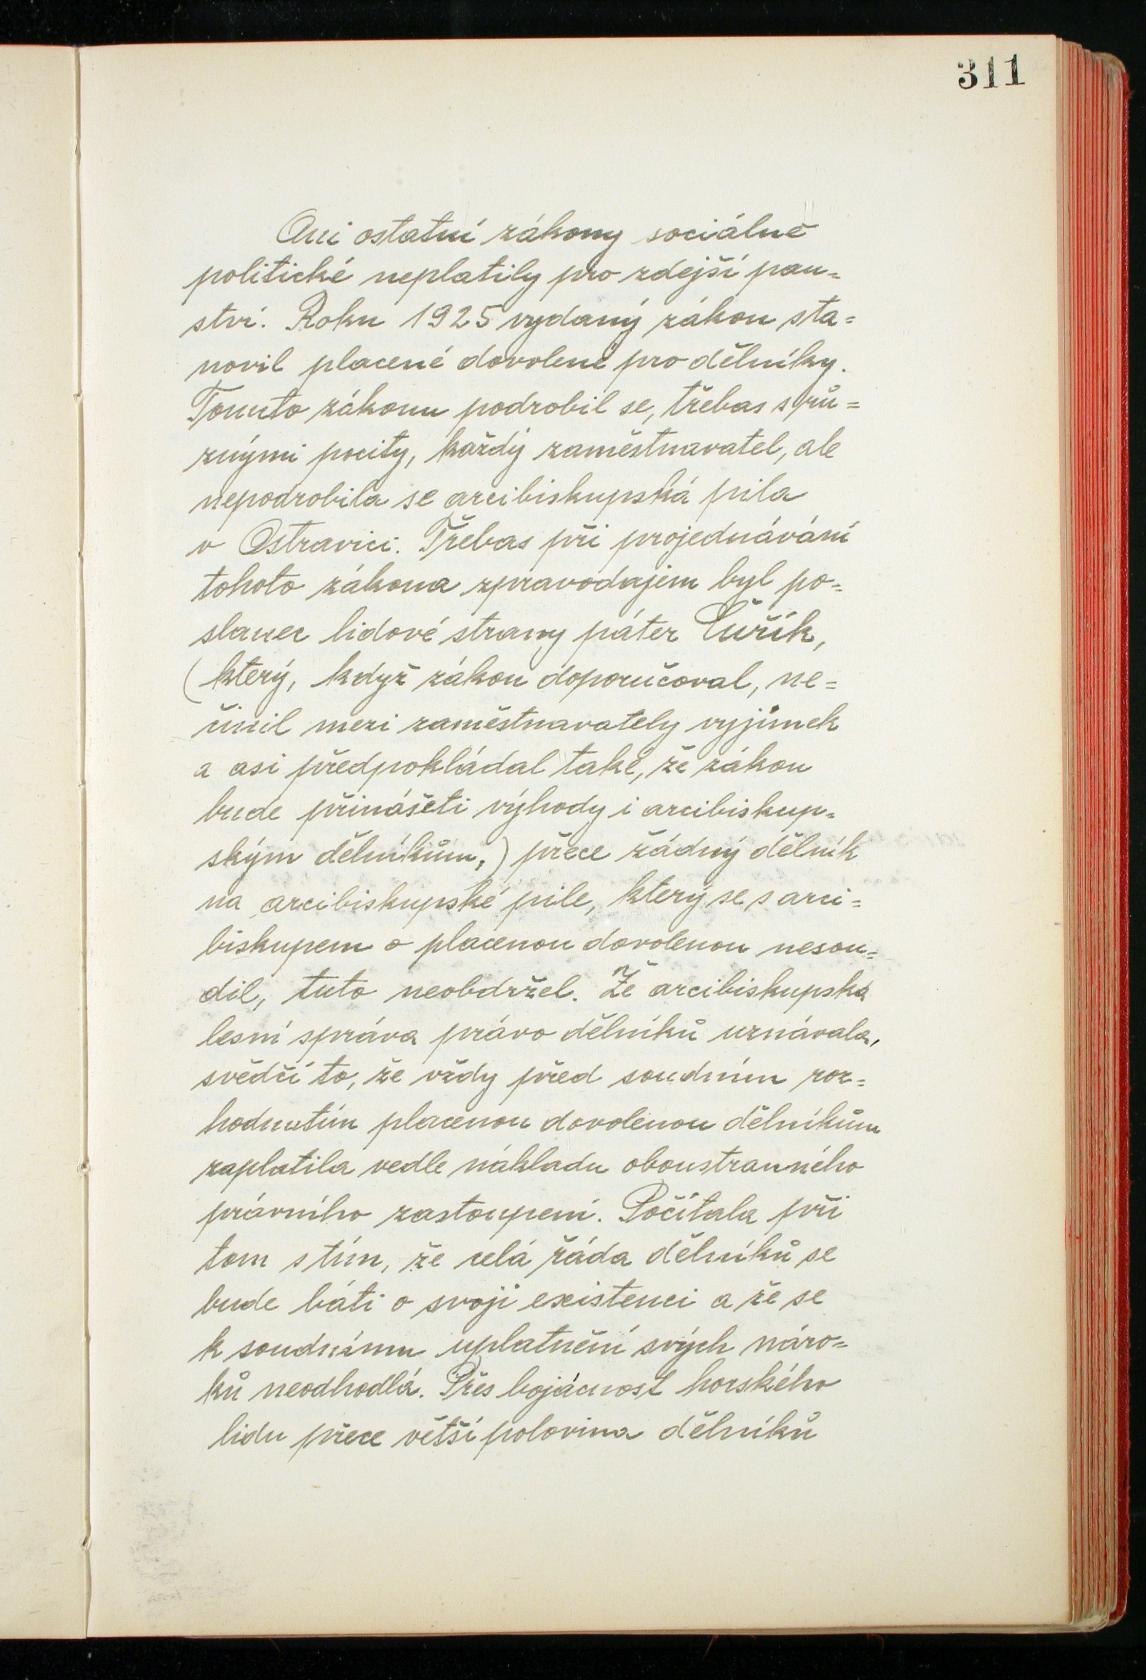 311
Ani ostatní zákony sociálně
politické neplatily pro zdejší pan=
ství. Roku 1925 vydaný zákon sta=
novil placené dovolené pro dělníky.
Tomuto zákonu podrobil se, třebas s rů=
znými pocity, každý zaměstnavatel, ale
nepodrobila se arcibiskupská pila
v Ostravici. Třebas při projednávání
tohoto zákona zpravodajem byl po=
slanec lidové strany páter Čuřík,
(který, když zákon doporučoval, ne=
činil mezi zaměstnavately vyjímek
a asi předpokládal také, že zákon
bude přinášeti výhody i arcibiskup=
ským dělníkům,) přece žádný dělník
na arcibiskupské pile, který se s arci=
biskupem o placenou dovolenou nesou=
dil, tuto neobdržel. Že arcibiskupská
lesní správa právo dělníků uznávala,
svědčí to, že vždy před soudním roz=
hodnutím placenou dovolenou dělníkům
zaplatila vedle nákladu oboustranného
právního zastoupení. Počítala při
tom s tím, že celá řáda dělníků se
bude báti o svoji existenci a že se
k soudnímu uplatnění svých náro=
ků neodhodlá. Přes bojácnost horského
lidu přece větší polovina dělníků